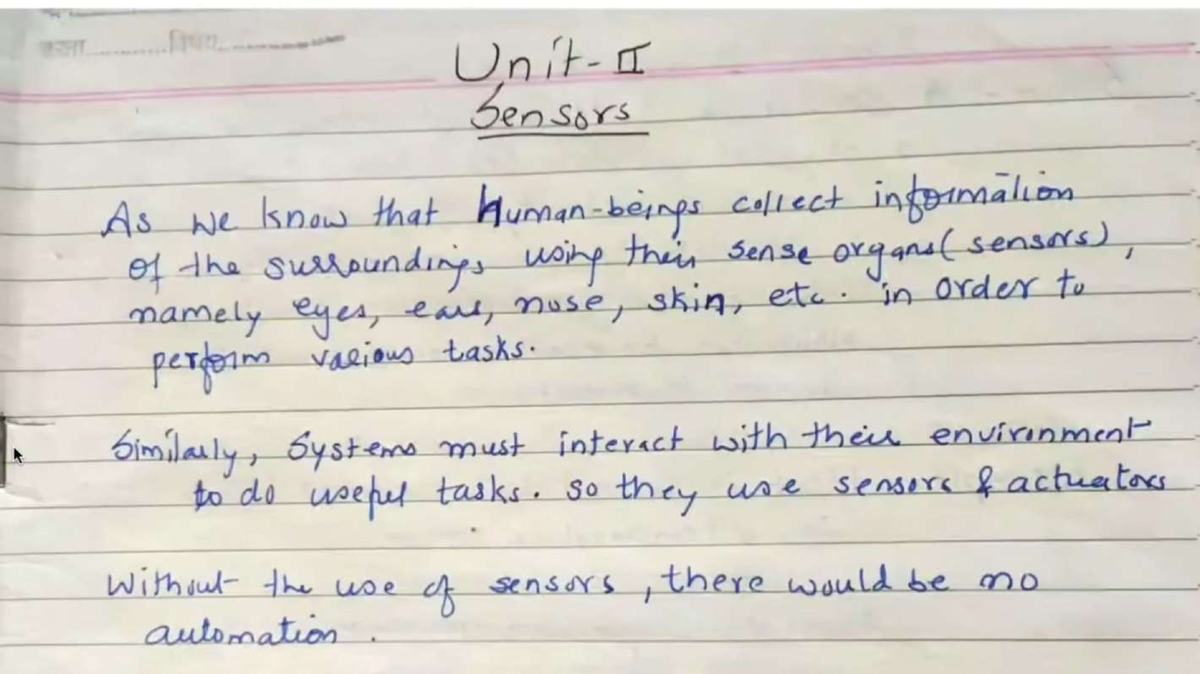 कक्षा..........विषय..........
Unit-II
Sensors
As we know that Human-beings collect information
of the surroundings using their sense organs (sensors),
namely eyes, ears, nose, skin, etc. in order to
perform various tasks.
Similarly, Systems must interact with their environment
to do useful tasks. so they use sensors & actuators
Without the use of sensors, there would be no
automation.